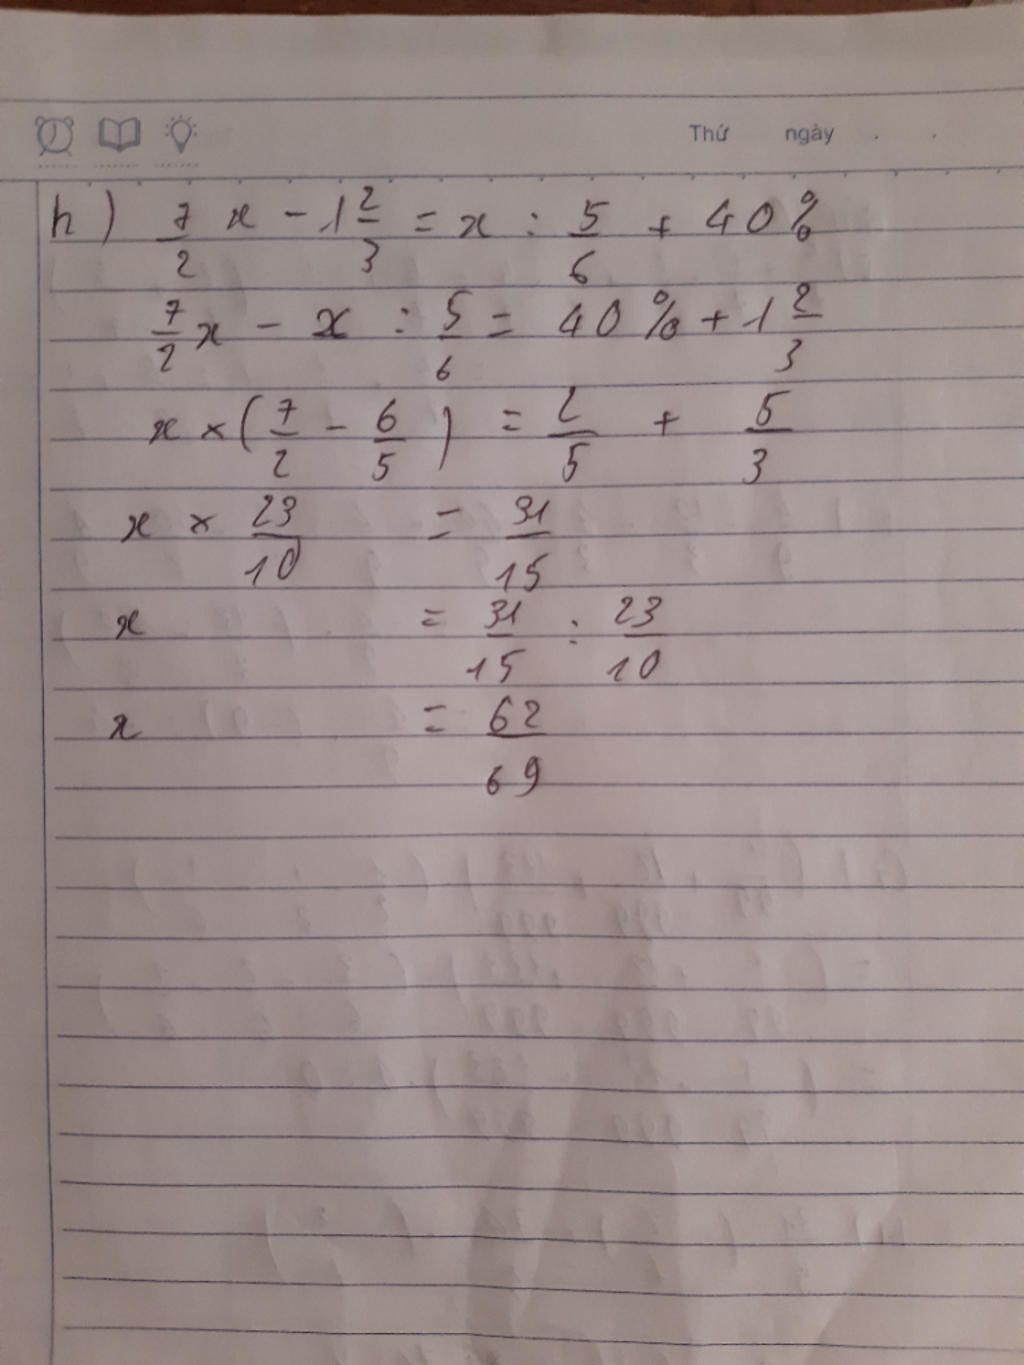 Thứ ngày
h) 7/2 x - 1 2/3 = x : 5/6 + 40%
7/2 x - x : 5/6 = 40% + 1 2/3
x × (7/2 - 6/5) = 2/5 + 5/3
x × 23/10 = 31/15
x = 31/15 : 23/10
x = 62/69